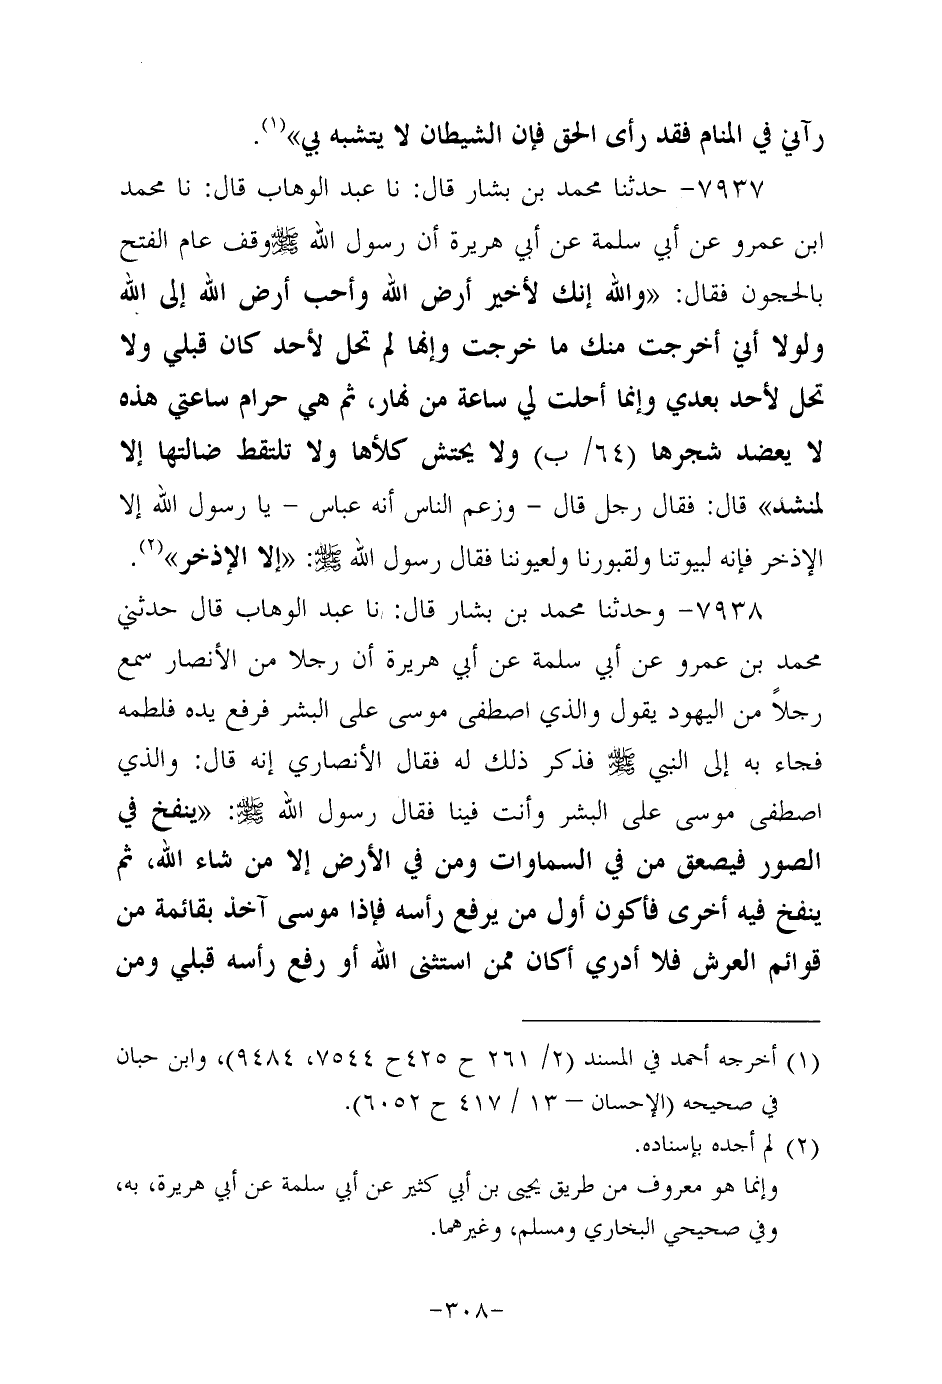 رآني في المنام فقد رأى الحق فإن الشيطان لا يتشبه بي»(١).
٧٩٣٧- حدثنا محمد بن بشار قال: نا عبد الوهاب قال: نا محمد
ابن عمرو عن أبي سلمة عن أبي هريرة أن رسول الله ﷺوقف عام الفتح
بالحجون فقال: «والله إنك لأخير أرض الله وأحب أرض الله إلى الله
ولولا أني أخرجت منك ما خرجت وإنها لم تحل لأحد كان قبلي ولا
تحل لأحد بعدي وإنما أحلت لي ساعة من نهار، ثم هي حرام ساعتي هذه
لا يعضد شجرها (٦٤/ ب) ولا يحتش كلأها ولا تلتقط ضالتها إلا
لمنشد» قال: فقال رجل قال - وزعم الناس أنه عباس - يا رسول الله إلا
الإذخر فإنه لبيوتنا ولقبورنا ولعيوننا فقال رسول الله ﷺ: «إلا الإذخر»(٢).
٧٩٣٨- وحدثنا محمد بن بشار قال: نا عبد الوهاب قال حدثني
محمد بن عمرو عن أبي سلمة عن أبي هريرة أن رجلا من الأنصار سمع
رجلاً من اليهود يقول والذي اصطفى موسى على البشر فرفع يده فلطمه
فجاء به إلى النبي ﷺ فذكر ذلك له فقال الأنصاري إنه قال: والذي
اصطفى موسى على البشر وأنت فينا فقال رسول الله ﷺ: «ينفخ في
الصور فيصعق من في السماوات ومن في الأرض إلا من شاء الله، ثم
ينفخ فيه أخرى فأكون أول من يرفع رأسه فإذا موسى آخذ بقائمة من
قوائم العرش فلا أدري أكان ممن استثنى الله أو رفع رأسه قبلي ومن
(١) أخرجه أحمد في المسند (٢/ ٢٦١ ح ٤٢٥ح ٧٥٤٤، ٩٤٨٤)، وابن حبان
في صحيحه (الإحسان – ١٣ / ٤١٧ ح ٦٠٥٢).
(٢) لم أجده بإسناده.
وإنما هو معروف من طريق يحيى بن أبي كثير عن أبي سلمة عن أبي هريرة، به،
وفي صحيحي البخاري ومسلم، وغيرهما.
-٣٠٨-